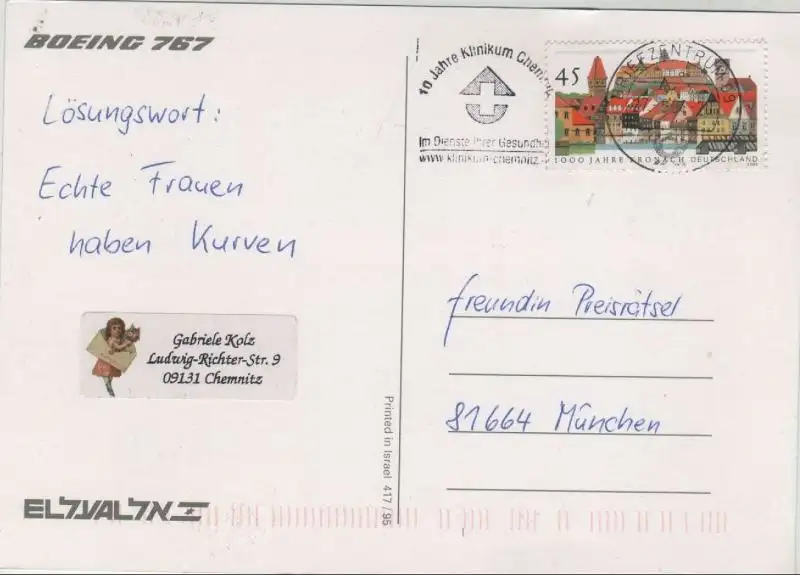 BOEING 767
Lösungswort:
Echte Frauen
haben Kurven
Gabriele Kolz
Ludwig-Richter-Str. 9
09131 Chemnitz
EL AL אל על
Printed in Israel 417/95
10 Jahre Klinikum Chemnitz
Im Dienste Ihrer Gesundhe
www.klinikum-chemnitz.
BRIEFZENTRUM 09
45
1000 JAHRE KRONACH DEUTSCHLAND
freundin Preisrätsel
81664 München